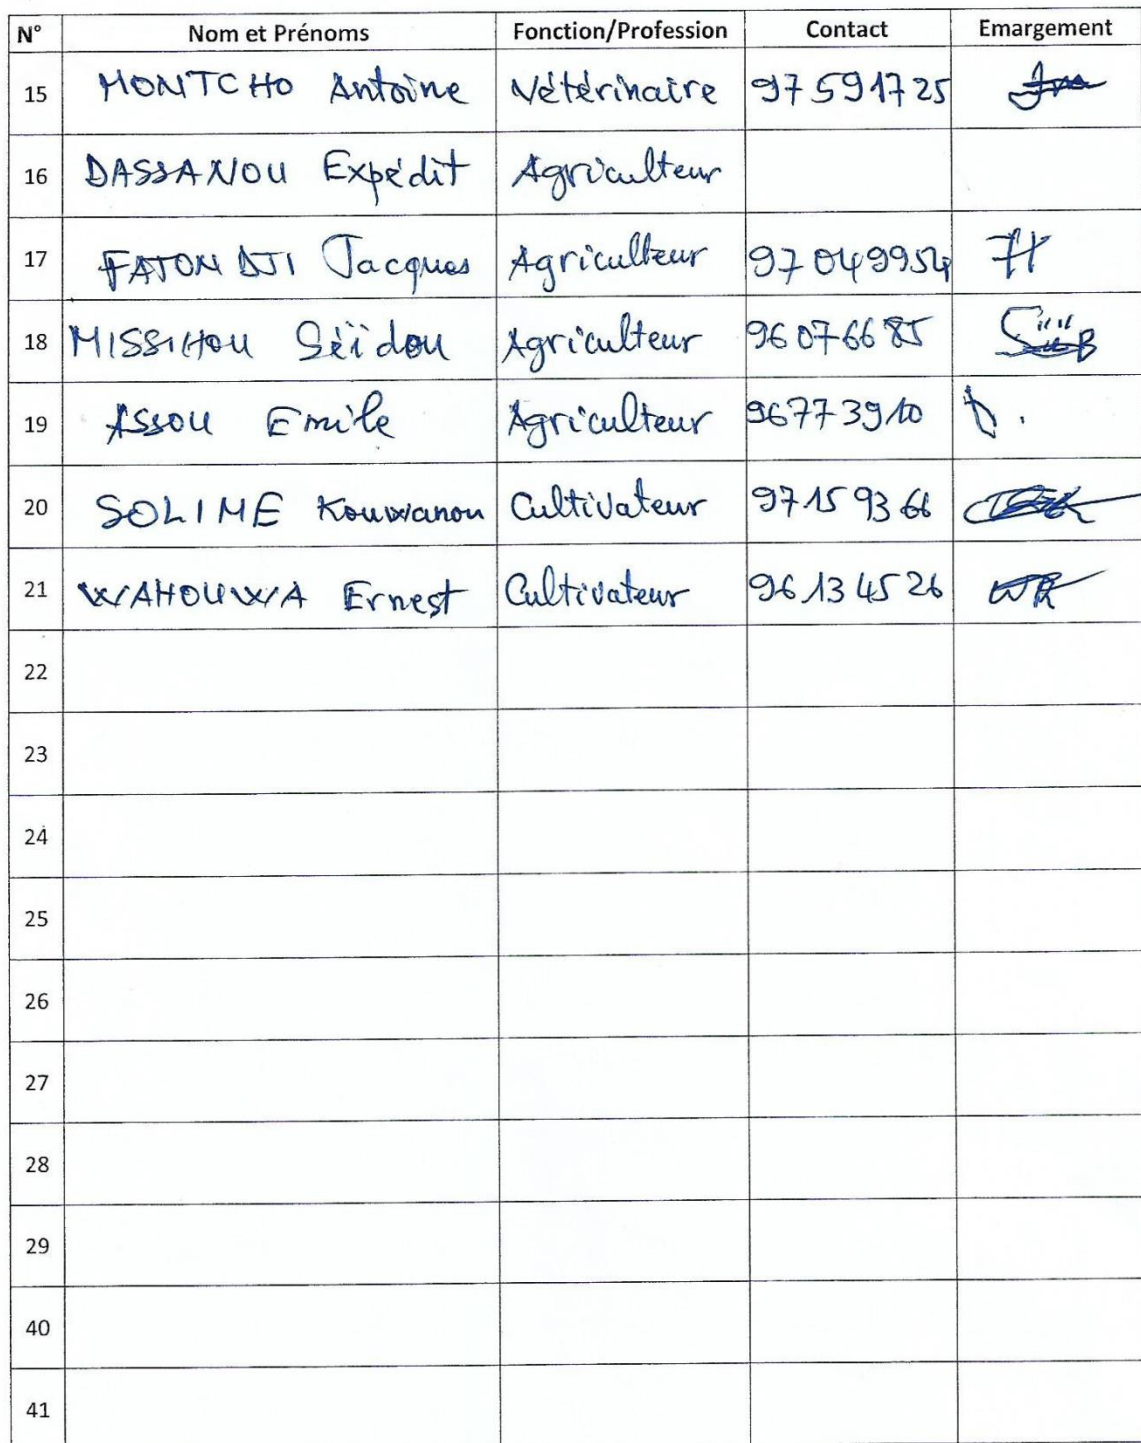 N° Nom et Prénoms Fonction/Profession Contact Emargement
15 MONTCHO Antoine Vétérinaire 97591725
16 DASSANOU Expédit Agriculteur
17 FATONDJI Jacques Agriculteur 97049954
18 MISSIHOU Séïdou Agriculteur 96076685
19 ASSOU Emile Agriculteur 96773910
20 SOLIME Kouwanou Cultivateur 97159366
21 WAHOUWA Ernest Cultivateur 96134526
22
23
24
25
26
27
28
29
40
41